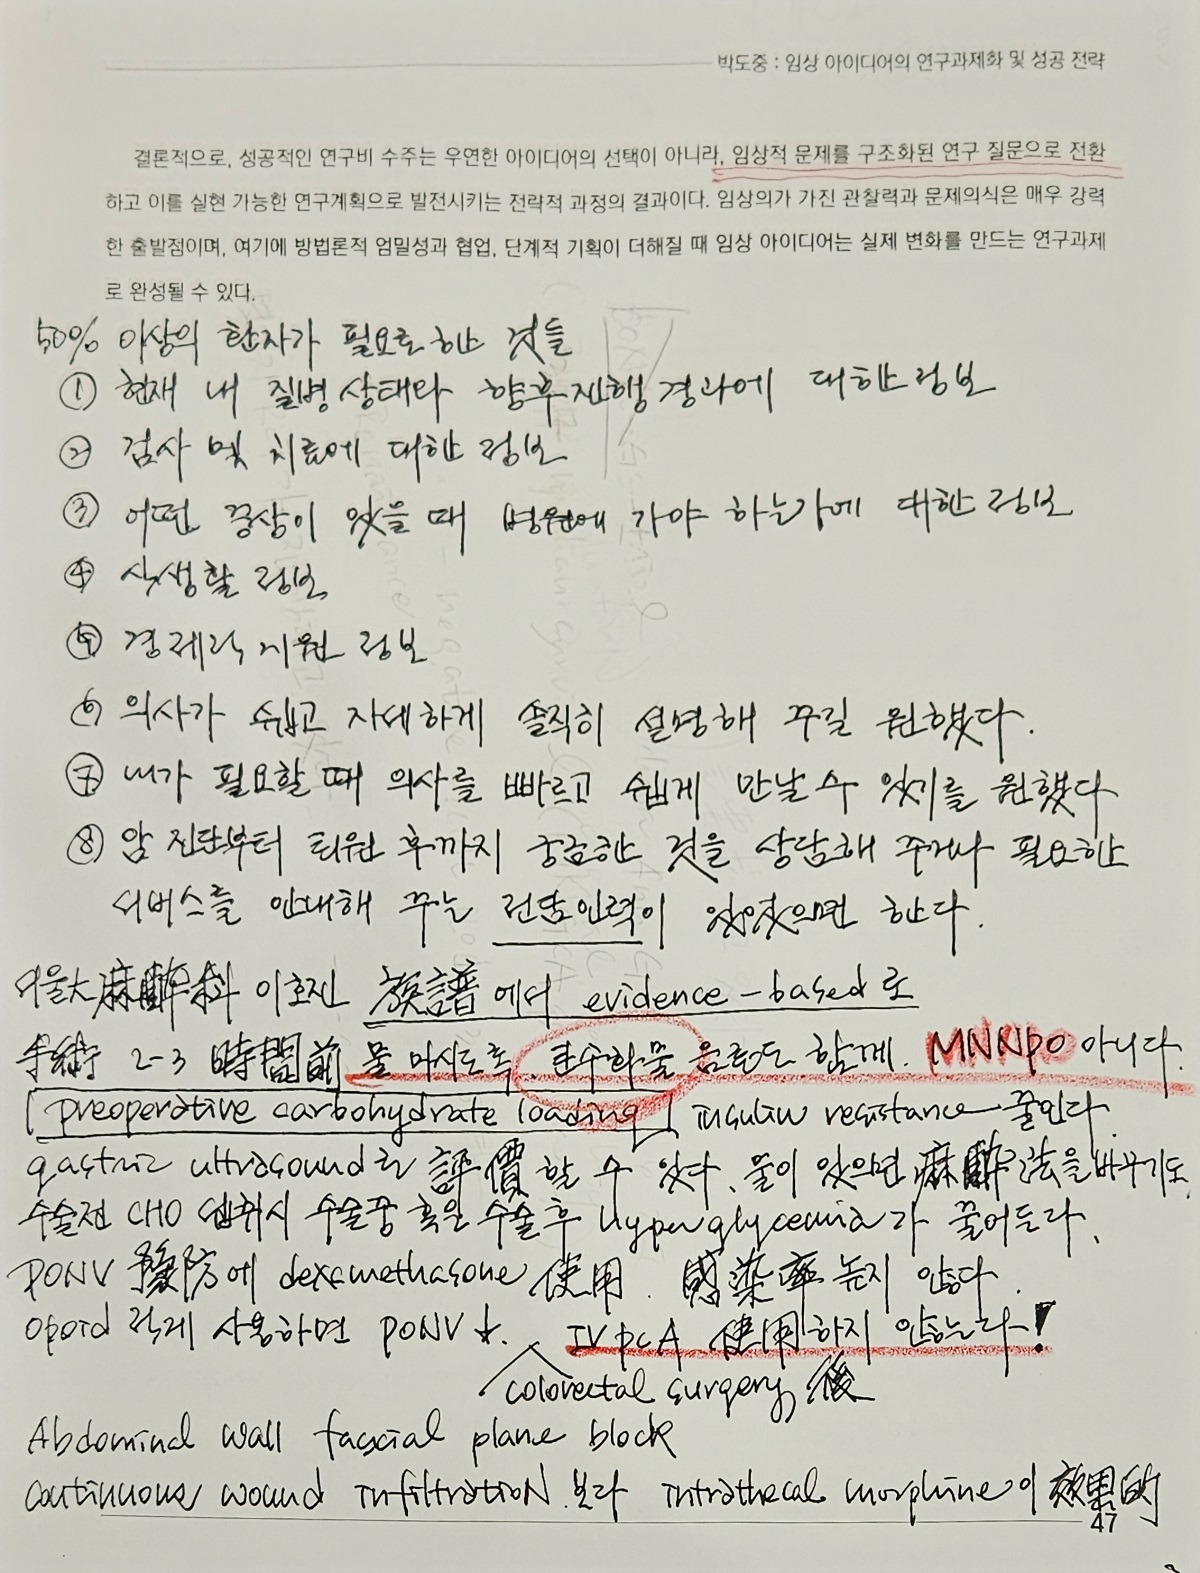 박도중 : 임상 아이디어의 연구과제화 및 성공 전략
결론적으로, 성공적인 연구비 수주는 우연한 아이디어의 선택이 아니라, 임상적 문제를 구조화된 연구 질문으로 전환
하고 이를 실현 가능한 연구계획으로 발전시키는 전략적 과정의 결과이다. 임상의가 가진 관찰력과 문제의식은 매우 강력
한 출발점이며, 여기에 방법론적 엄밀성과 협업, 단계적 기획이 더해질 때 임상 아이디어는 실제 변화를 만드는 연구과제
로 완성될 수 있다.
50% 이상의 환자가 필요로 하는 것들
① 현재 내 질병상태와 향후진행경과에 대한 정보
② 검사 및 치료에 대한 정보
③ 어떤 증상이 있을 때 병원에 가야 하는가에 대한 정보
④ 식생활 정보
⑤ 경제적 지원 정보
⑥ 의사가 쉽고 자세하게 솔직히 설명해 주길 원했다.
⑦ 내가 필요할 때 의사를 빠르고 쉽게 만날 수 있기를 원했다
⑧ 암 진단부터 퇴원 후까지 궁금한 것을 상담해 주거나 필요한
서비스를 안내해 주는 전담인력이 있었으면 한다.
서울大 麻醉科 이호진 族譜에서 evidence-based로
手術 2-3 時間前 물 마시도록. 탄수화물 음료도 함께. MNNPO 아니다.
[preoperative carbohydrate loading] insulin resistance 줄인다.
gastric ultrasound로 評價할 수 있다. 물이 있으면 麻醉法을 바꾸기도.
수술전 CHO 섭취시 수술중 혹은 수술후 hyperglycemia가 줄어든다.
PONV 豫防에 dexamethasone 使用. 感染率 높지 않다.
opoid 적게 사용하면 PONV ↓. IV PCA 使用하지 않는다!
colorectal surgery 後
Abdominal wall fascial plane block
continuous wound infiltration 보다 intrathecal morphine이 效果的
47